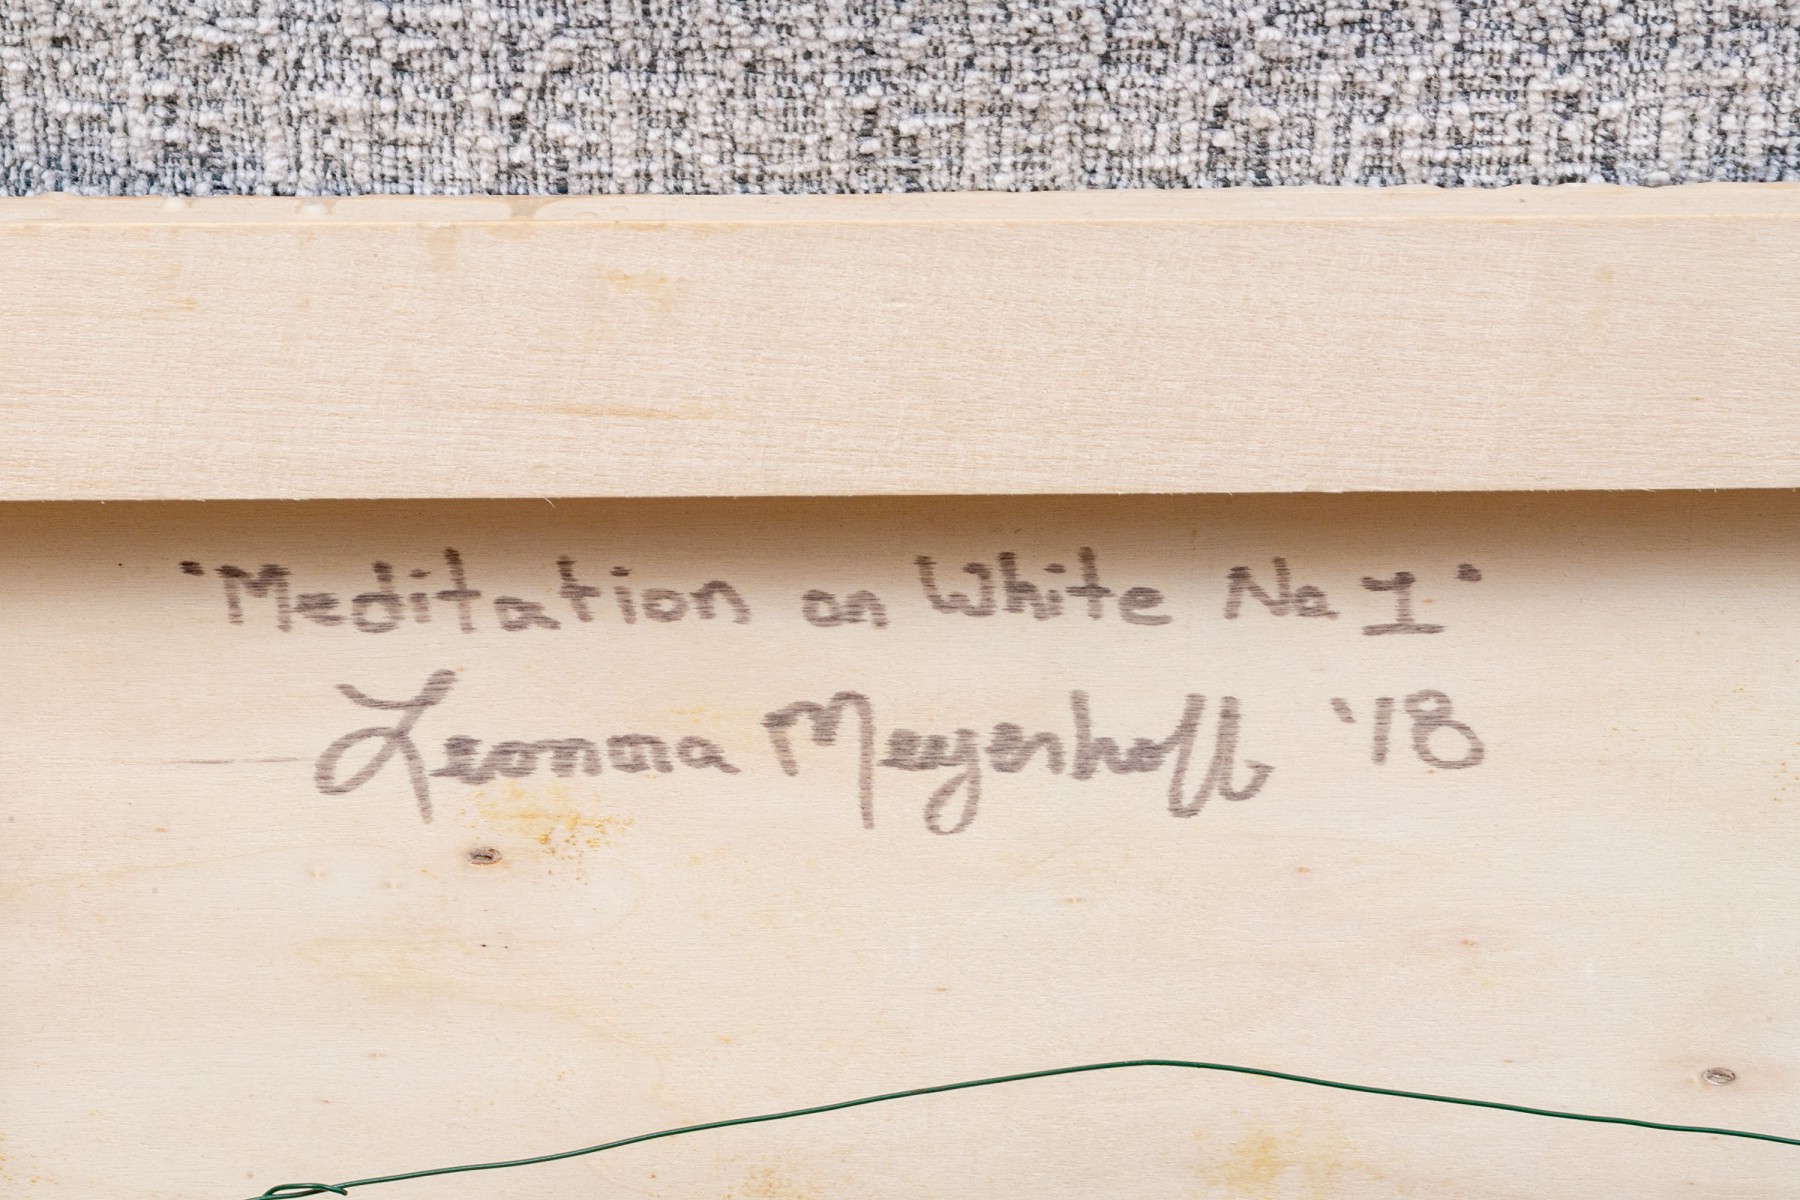 "Meditation on White No I"
Leonora Meyerhoff '18